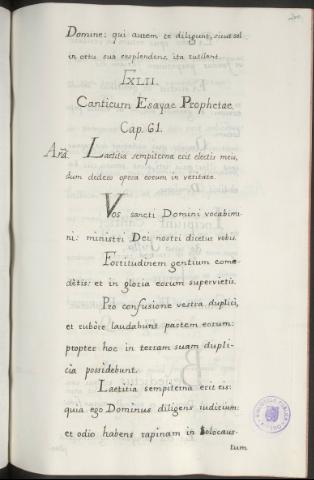 Domine: qui autem te diligunt, sicut sol
in ortu suo resplendens, ita rutilent.
LXLII.
Canticum Esayae Prophetae.
Cap. 61.
Laetitia sempiterna erit electis meis,
dum dedero opera eorum in veritate.
Vos sancti Domini vocabimi
ni: ministri Dei nostri dicetur vobis.
Fortitudinem gentium come
détis: et in gloria eorum supervietis.
Pro confusione vestra duplici,
et rubòre laudabunt partem eorum:
propter hoc in terram suam dupli-
cia possidebunt.
Laetitia sempiterna erit eis:
quia ego Dominus diligens iudicium:
et odio habens rapinam in holocaus-
tum